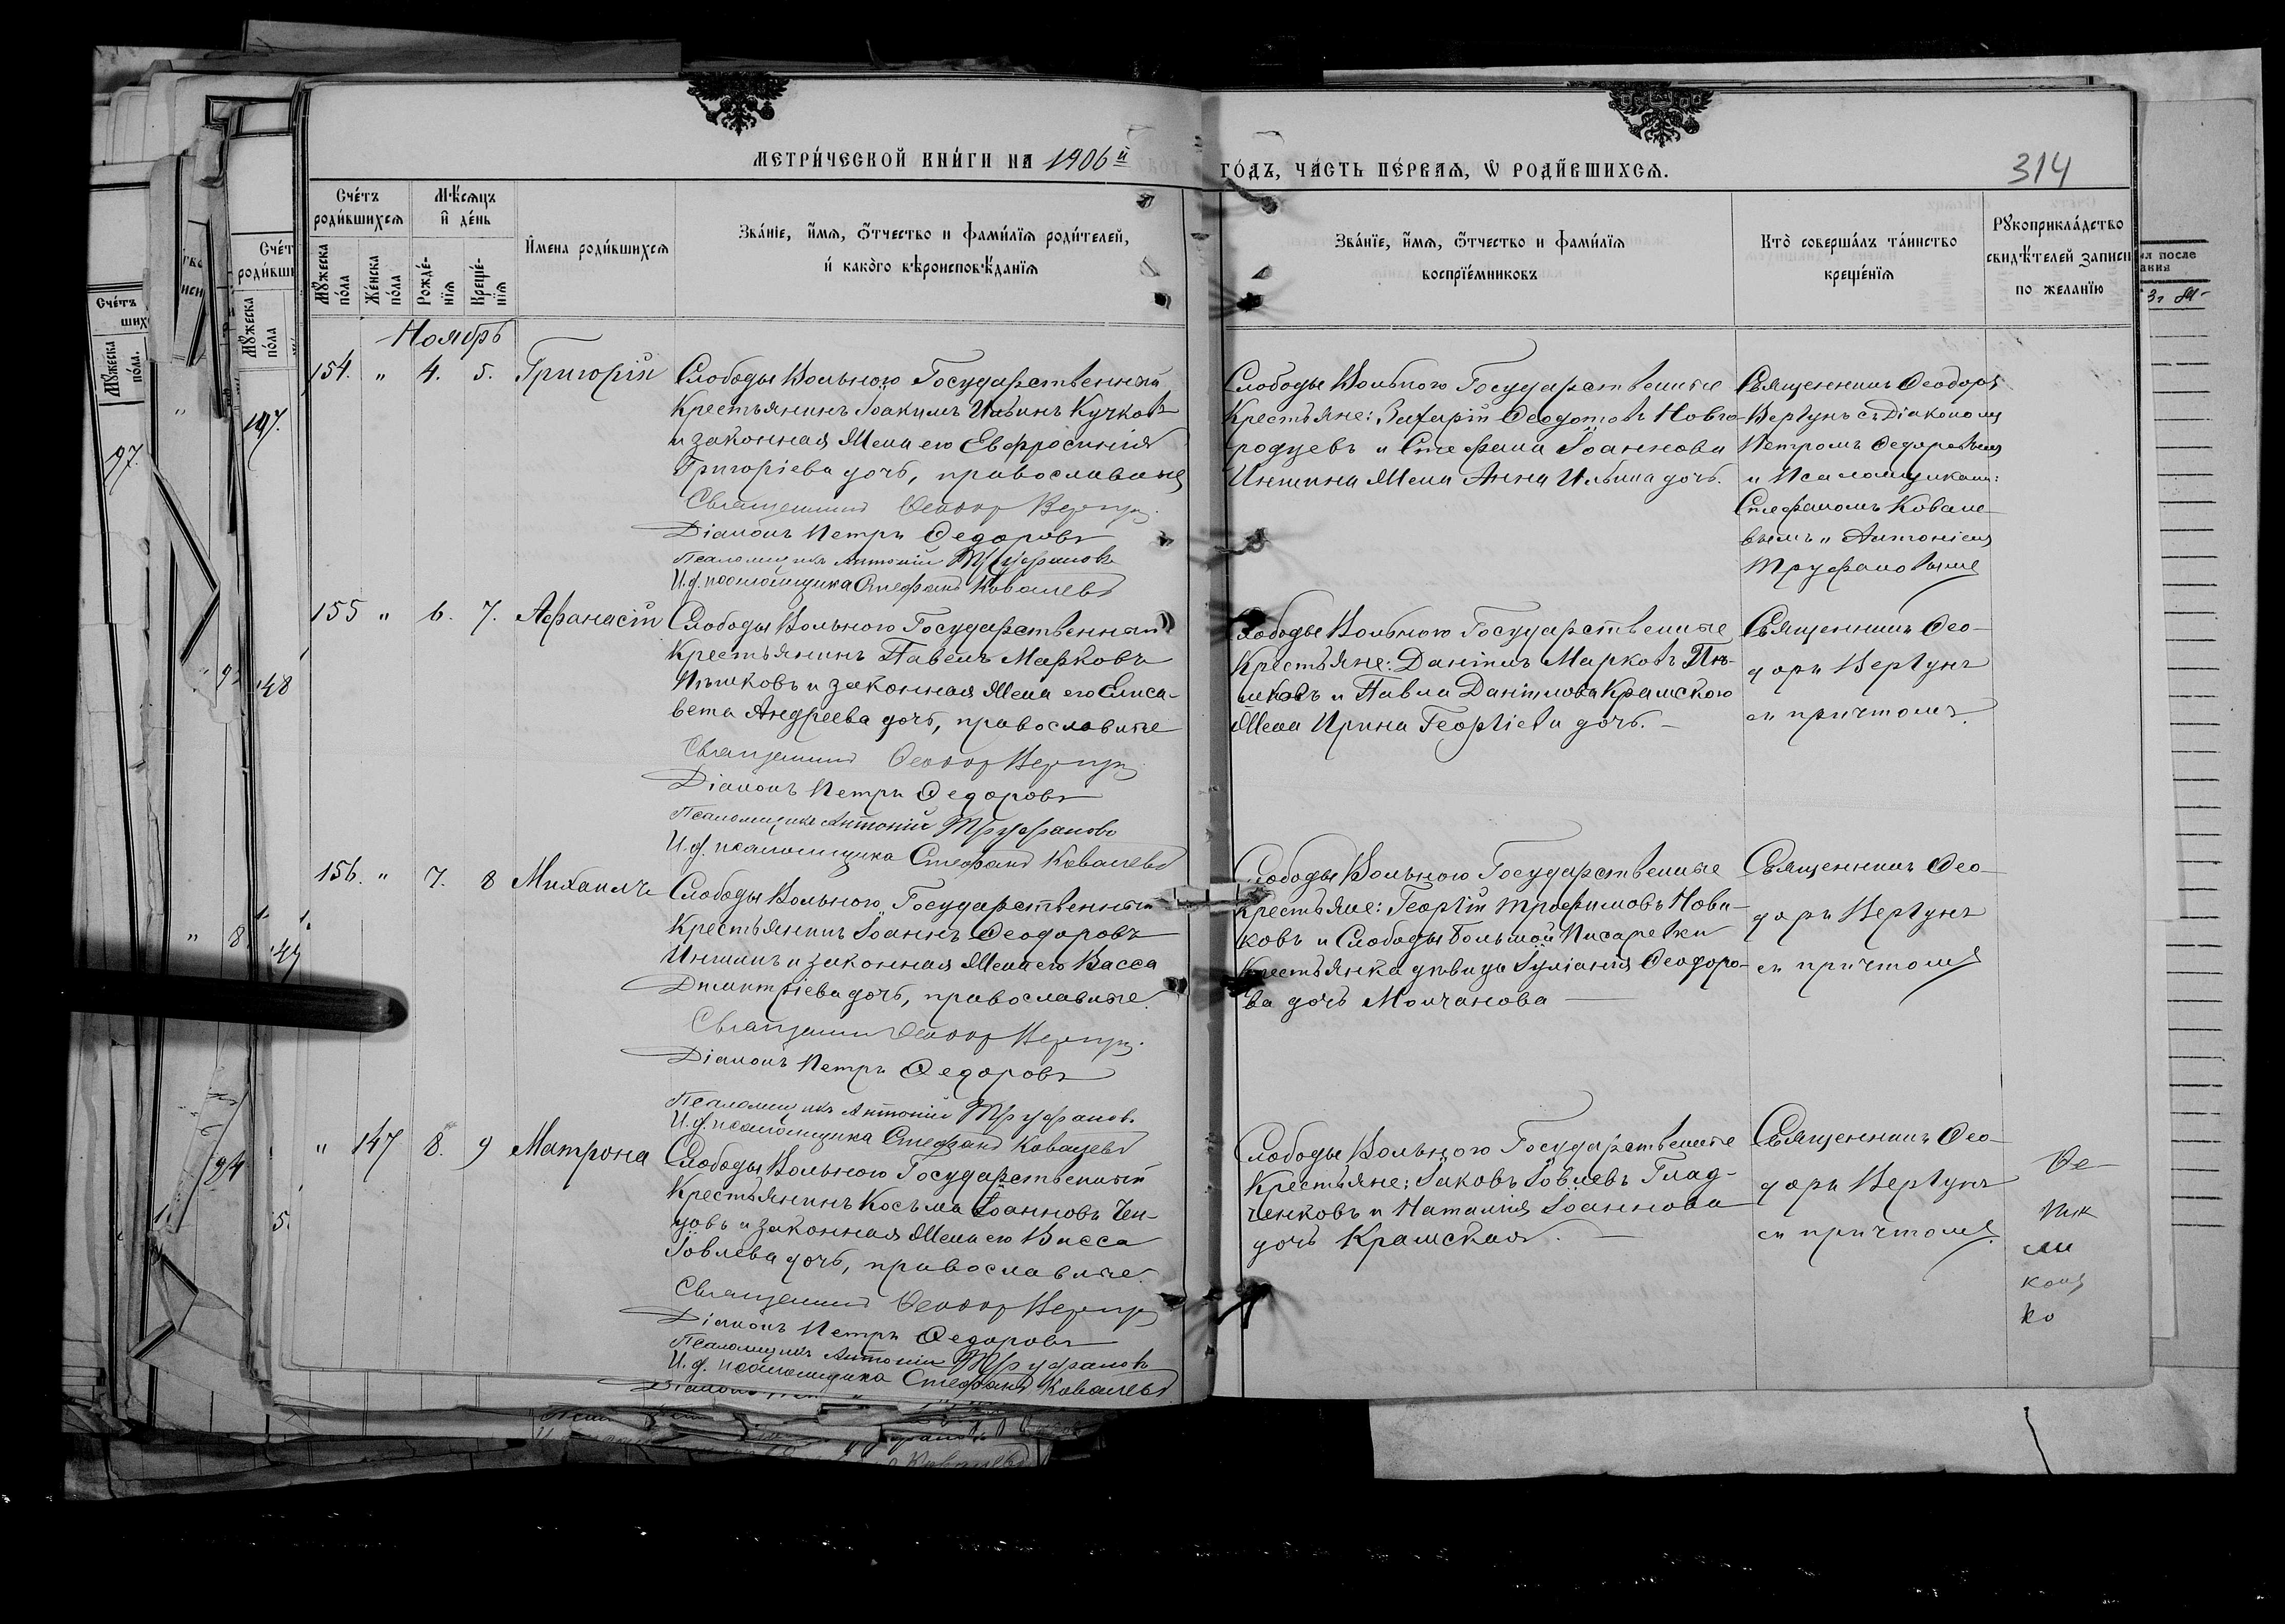 МЕТРИ́ЧЕСКОЙ КНИ́ГИ НА 1906й
ГО́ДЪ, ЧА́СТЬ ПЕ́РВАѦ, Ѡ РОДИ́ВШИХСѦ.
314
Сче́тъ
роди́вшихсѧ
Мѣ́сѧцъ
и̂ де́нь
И̂мена роди́вшихсѧ
Зва́нїе, и̂мѧ, ѻ̂тчество и фами́лїѧ роди́телей,
и̂ како́го вѣроисповѣ́данїѧ
Мꙋ́жеска
по́ла
Же́нска
по́ла
Рожде́-
нїѧ
Креще́-
нїѧ
Зва́нїе, и̂мѧ, ѻ̂тчество и фами́лїѧ
воспрїе́мниковъ
Кто̀ соверша́лъ та́инство
креще́нїѧ
Рꙋкоприкла́дство
свидѣ́телей записи
по жела́нїю
Ноябрь
154. " 4. 5. Григорій
Слободы Вольного Государственный
Крестьянинъ Іоакимъ Ильинъ Кучковъ
и законная Жена его Евфросинія
Григоріева дочь, православные
Священникъ Ѳеодоръ Вергунъ
Діаконъ Петръ Ѳедоровъ
Псаломщикъ Антоній Труфановъ
И.д. псаломщика Стефанъ Ковалевъ
Слободы Вольного Государственные
Крестьяне: Захарій Ѳеодотовъ Новго-
родцевъ и Стефана Іоаннова
Иншина Жена Анна Ильина дочь.
Священникъ Ѳеодоръ
Вергунъ съ Діакономъ
Петромъ Ѳедоровымъ
и Псаломщиками:
Стефаномъ Ковале-
вымъ и Антоніемъ
Труфановымъ
155 " 6. 7. Афанасій
Слободы Вольного Государственный
Крестьянинъ Павелъ Марковъ
Пѣшковъ и законная Жена его Елиса-
вета Андреева дочь, православные
Священникъ Ѳеодоръ Вергунъ
Діаконъ Петръ Ѳедоровъ
Псаломщикъ Антоній Труфановъ
И.д. псаломщика Стефанъ Ковалевъ
Слободы Вольного Государственные
Крестьяне: Даніилъ Марковъ Пѣ-
шковъ и Павла Даніилова Крамского
Жена Ирина Георгіева дочь. —
Священникъ Ѳео-
доръ Вергунъ
съ причтомъ.
156. " 7. 8 Михаилъ
Слободы Вольного Государственный
Крестьянинъ Іоаннъ Ѳеодоровъ
Иншинъ и законная Жена его Васса
Димитріева дочь, православные.
Священникъ Ѳеодоръ Вергунъ
Діаконъ Петръ Ѳедоровъ
Псаломщикъ Антоній Труфановъ.
И.д. псаломщика Стефанъ Ковалевъ
Слободы Вольного Государственные
Крестьяне: Георгій Трофимовъ Нови-
ковъ и Слободы Большой Писаревки
Крестьянка дѣвица Іуліанія Ѳеодоро-
ва дочь Молчанова —
Священникъ Ѳео-
доръ Вергунъ
съ причтомъ
" 147 8. 9 Матрона
Слободы Вольного Государственный
Крестьянинъ Косьма Іоанновъ
и законная Жена его Васса
Іовлева дочь, православные.
Священникъ Ѳеодоръ Вергунъ
Діаконъ Петръ Ѳедоровъ
Псаломщикъ Антоній Труфановъ
И.д. псаломщика Стефанъ Ковалевъ
Слободы Вольного Государственные
Крестьяне: Іаковъ Іовлевъ Глад-
ченковъ и Наталія Іоаннова
дочь Крамская. —
Священникъ Ѳео-
доръ Вергунъ
съ причтомъ.